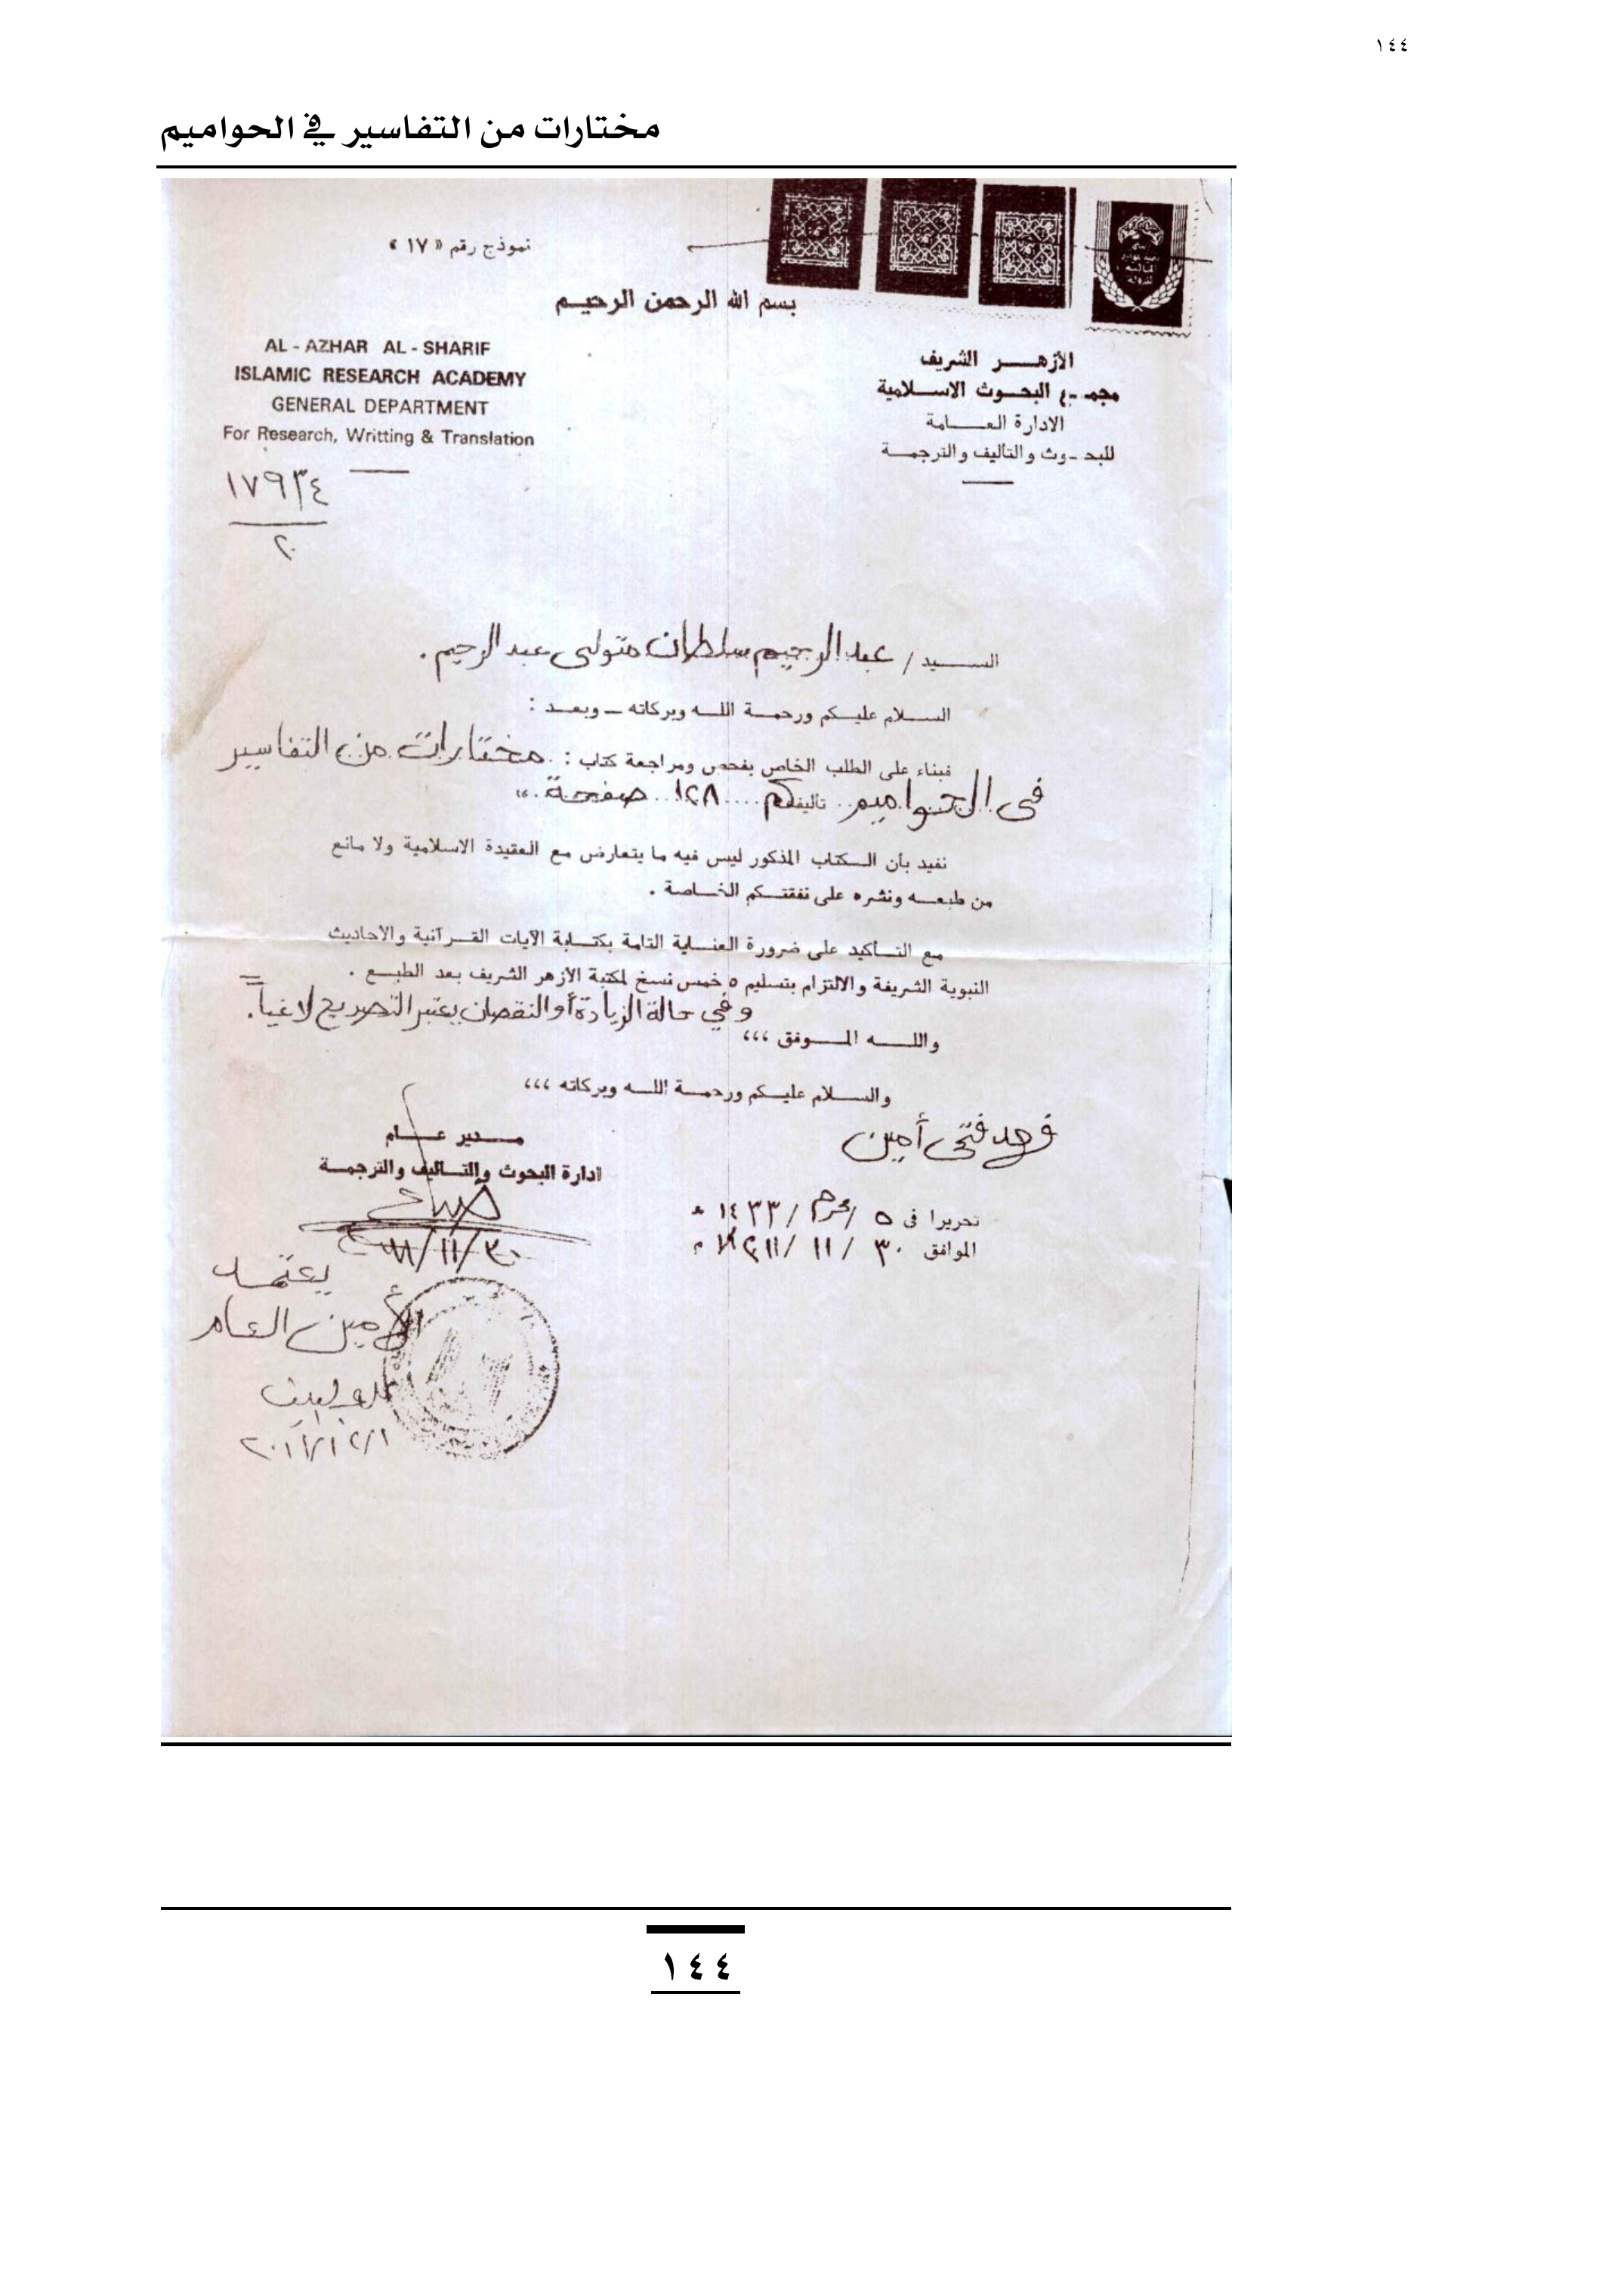 ١٤٤
مختارات من التفاسير في الحواميم
نموذج رقم « ١٧ »
بسم الله الرحمن الرحيم
الأزهر الشريف
مجمع البحوث الاسلامية
الادارة العامة
للبحوث والتأليف والترجمة
AL - AZHAR AL - SHARIF
ISLAMIC RESEARCH ACADEMY
GENERAL DEPARTMENT
For Research, Writting & Translation
السيد / عبد الرحيم سلطان متولى عبد الرحيم .
السلام عليكم ورحمة الله وبركاته ــ وبعد :
فبناء على الطلب الخاص بفحص ومراجعة كتاب : مختارات من التفاسير
فى الحواميم .. تأليفكم .... ١٢٨ .. صفحة ..
نفيد بأن الكتاب المذكور ليس فيه ما يتعارض مع العقيدة الاسلامية ولا مانع
من طبعه ونشره على نفقتكم الخاصة .
مع التأكيد على ضرورة العناية التامة بكتابة الآيات القرآنية والاحاديث
النبوية الشريفة والالتزام بتسليم ٥ خمس نسخ لمكتبة الأزهر الشريف بعد الطبع .
وفي حالة الزيادة أو النقصان يعتبر التصريح لاغياً .
والله الموفق ،،،
والسلام عليكم ورحمة الله وبركاته ،،،
فتحى أمين
مدير عام
ادارة البحوث والتأليف والترجمة
تحريرا فى ٥ / محرم / ١٤٣٣ هـ
الموافق ٣٠ / ١١ / ٢٠١١ م
٣٠/١١/
يعتمد
الأمين العام
١٤٤